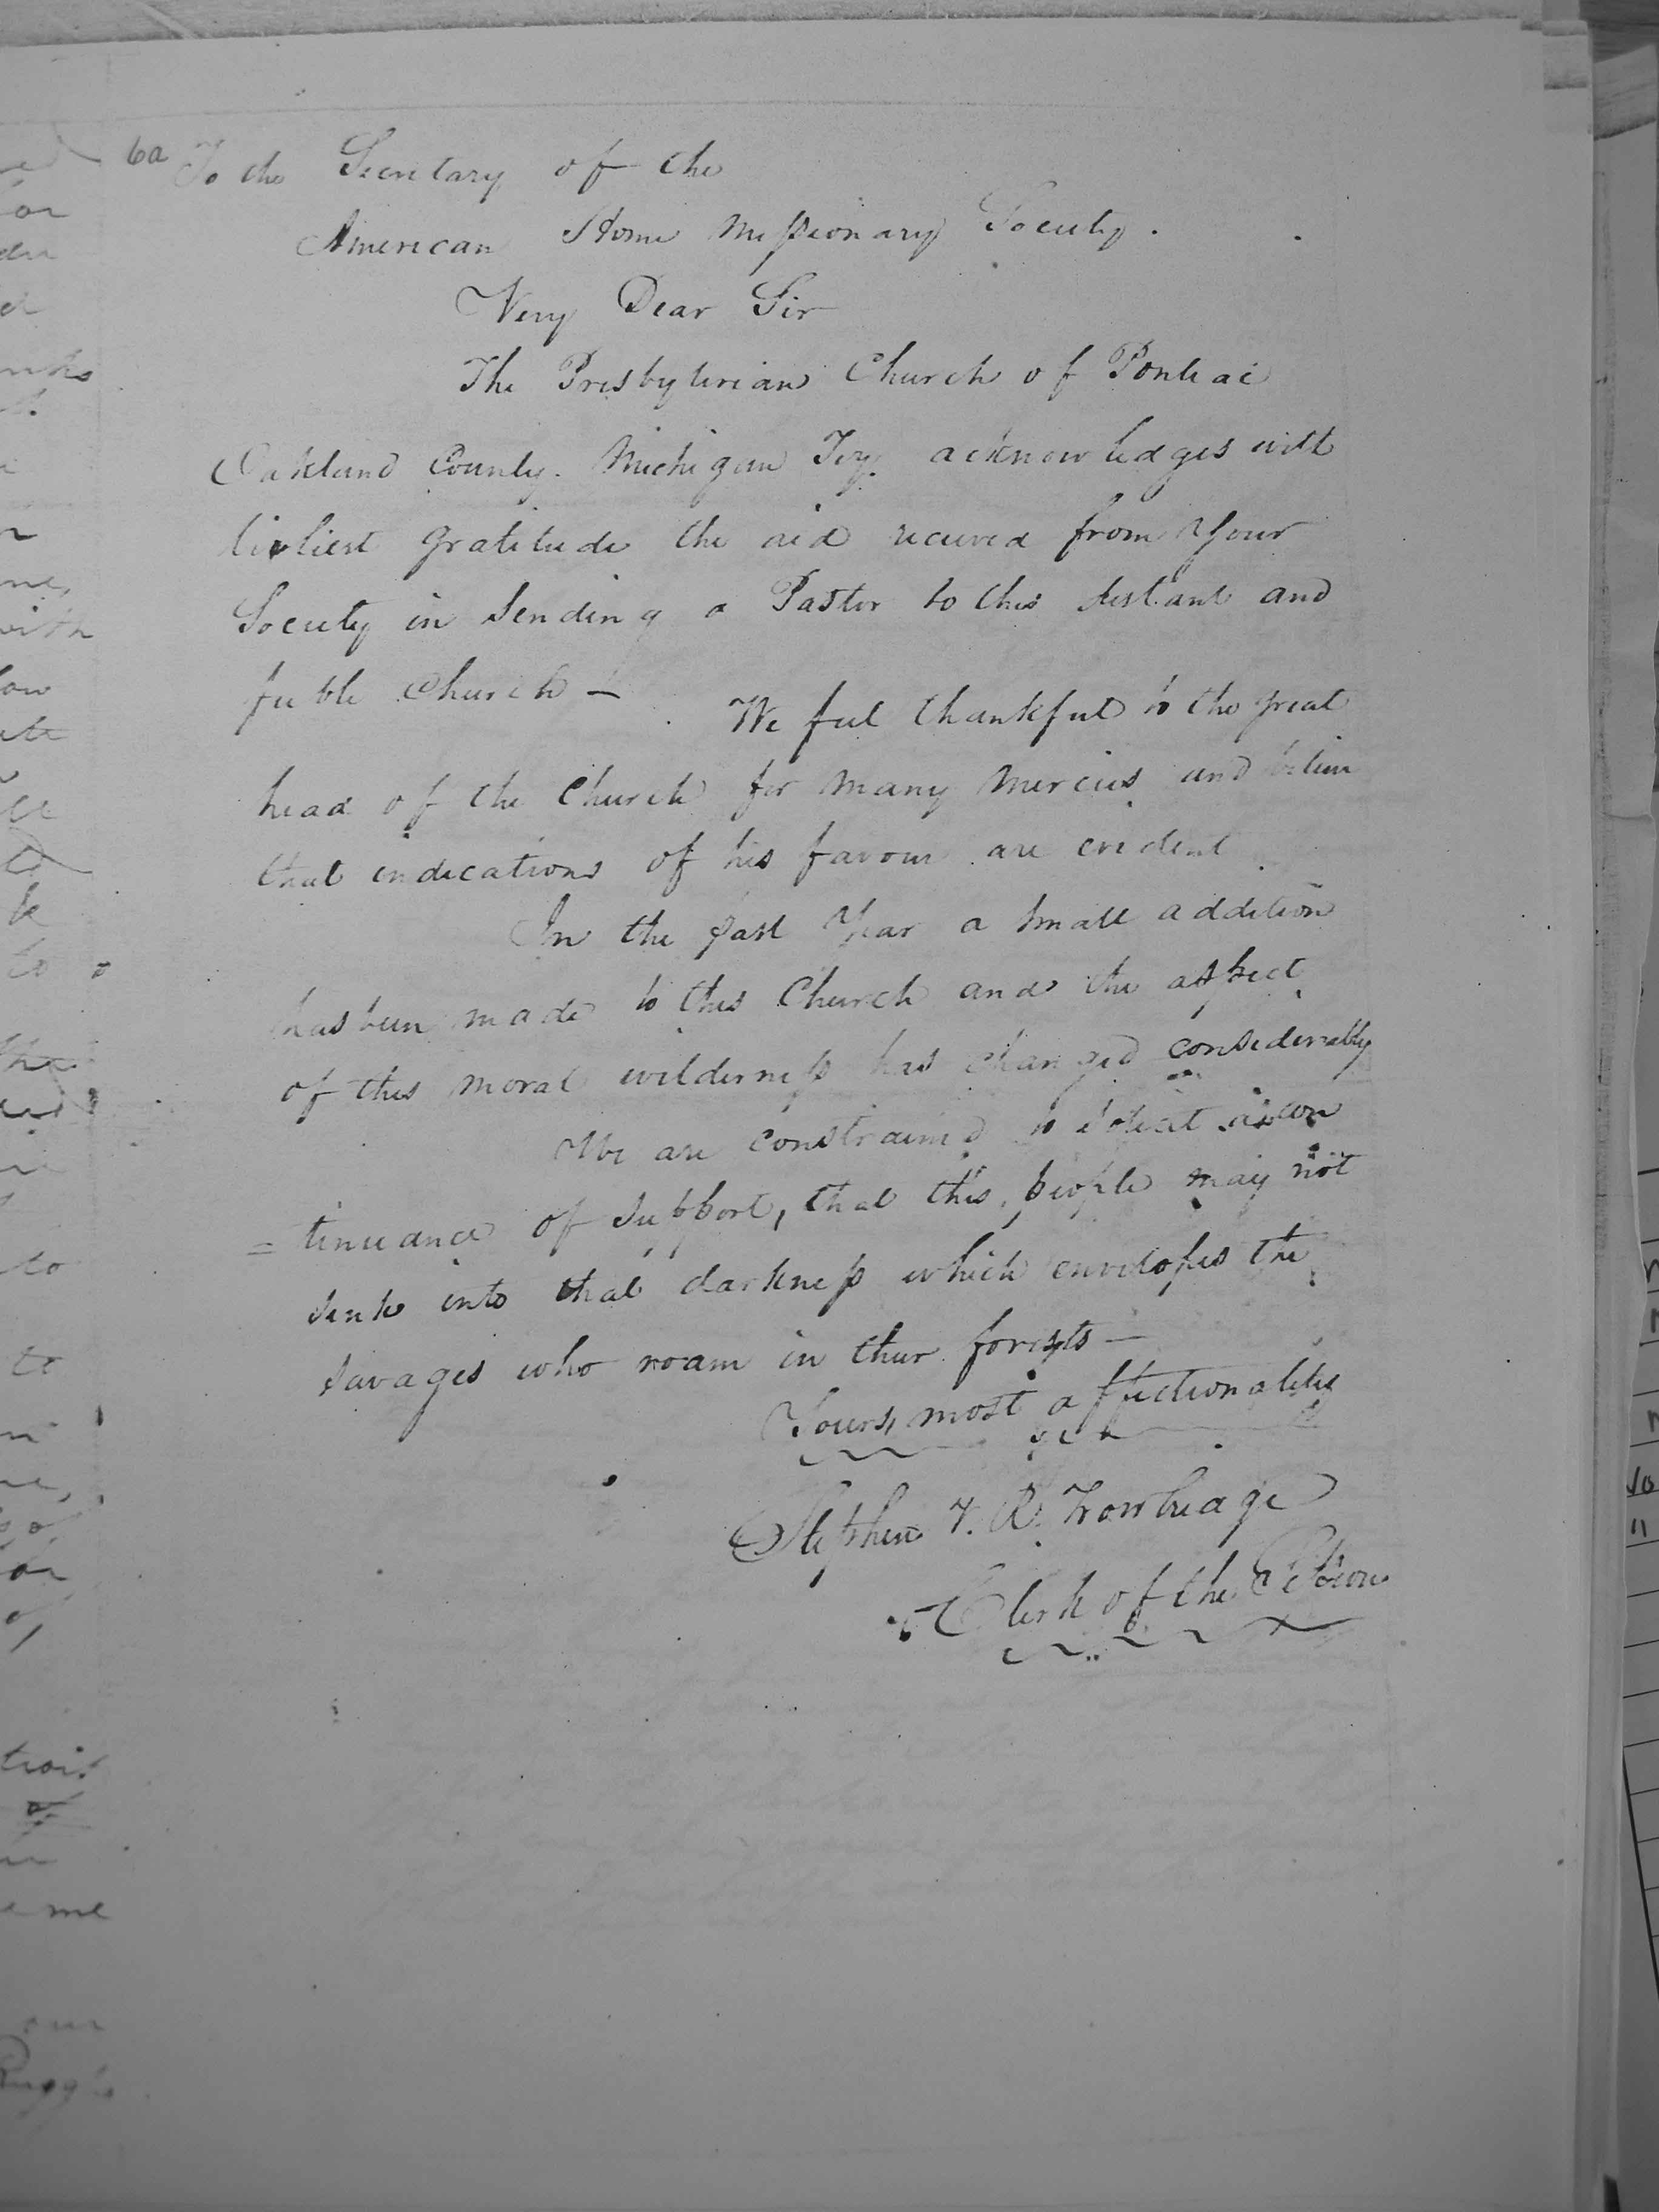 6a To the Secretary of the
American Home Missionary Society.
Very Dear Sir
The Presbyterian Church of Pontiac
Oakland County. Michigan Ty. acknowledges with
livliest gratitude the aid received from Your
Society in sending a Pastor to this distant and
feeble Church —
We feel thankful to the great
head of the Church for many mercies and believe
that indications of his favour are evident
In the past Year a small addition
has been made to this Church and the aspect
of this moral wilderness has changed considerably
We are constrained to solicit a con
= tinuance of support, that this people may not
sink into that darkness which envelopes the
savages who roam in their forests —
Yours most affectionately
Stephen V. R. Trowbridge
Clerk of the Session